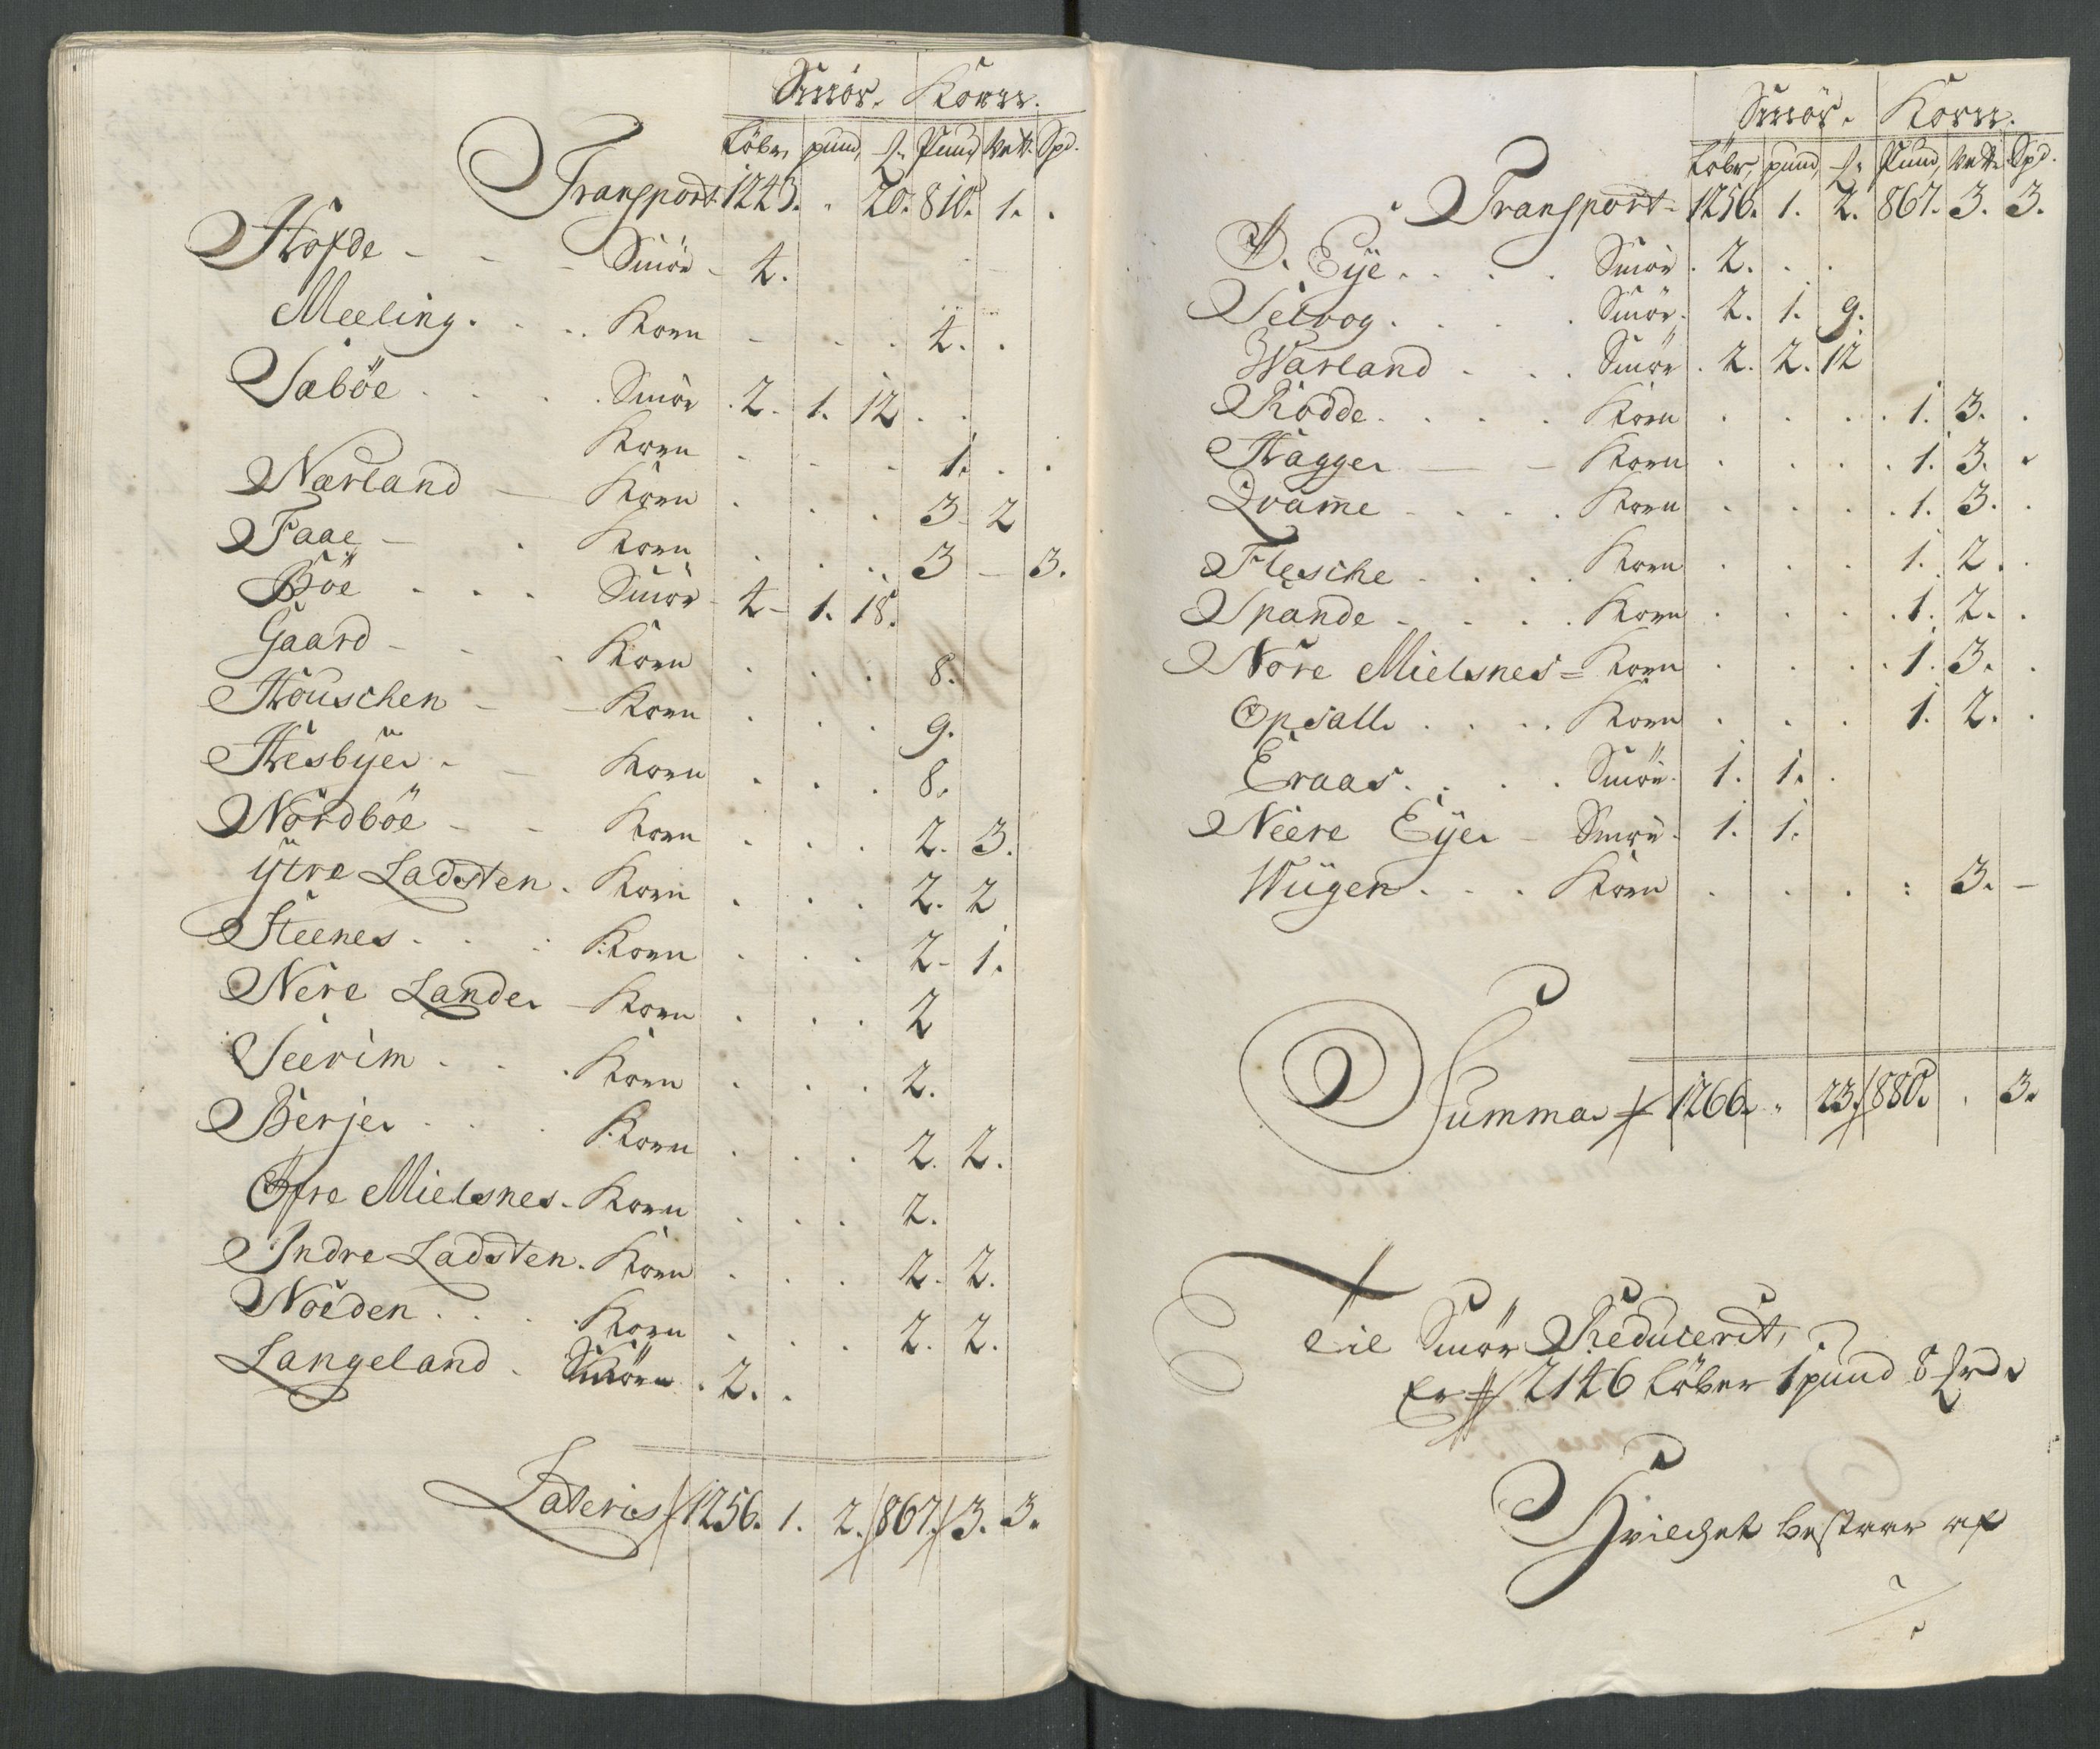 Smör. Korn.
Löber, pund, ℔. Pund, Vett. Spd.
Transport 1243. . 20. 810. 1. .
Hofde - - - Smör - 4.
Meeling. . . . Korn - - . 4. .
Sæböe . . . . Smör . 2. 1. 12 . .
Korn . - - 1. . .
Nærland - Korn . . . 3 - 2
Faae - . Korn . . . 3 - 3.
Böe . . . Smör - 4 - 1. 18.
Gaard - - . Korn . . . 8.
Houschen - - Korn . . . 9.
Hesbyer - - Korn . . . 8.
Nordböe - - Korn . . . 2. 3.
Ytre Ladsten . Korn . . . 2. 2
Steenes . . . Korn . . . 2 - 1.
Nere Lande - Korn . . . 2
Seerim . . . Korn . . . 2.
Berje . . . Korn . . . 2. 2.
Öfre Mielsnes. Korn . . . 2.
Indre Ladsten. Korn . . . 2. 2.
Noeden . . . Korn . . . 2. 2.
Langeland . Smör . 2. .
Lateris 1256. 1. 2. 867. 3. 3.
Smör. Korn.
Löber, pund, ℔. Pund, Vett. Spd.
Transport - 1256. 1. 2. 867. 3. 3.
Ö. Eÿe . . . Smör . 2. . .
Selvog . . . . Smör . 2. 1. 9.
Warland - . . Smör . 2. 2. 12
Rodde . . . . Korn . . . . 1. 3. .
Hagge - - Korn . . . . 1. 3. .
Qvam̄e - . . . Korn . . . . 1. 3. .
Flesche . . . . Korn . . . 1. 2. .
Spande - . . . Korn . . . . 1. 2. .
Nore Mielsnes = Korn . . . . 1. 3. .
Opsall . . . . Korn . . . 1. 2. .
Eraas . . . . Smör . 1. 1. .
Neere Eÿe - Smör . 1. 1.
Wügen . . . Korn . . . : 3. -
Summa 1266. . 23. 880. . 3.
Til Smör Reducerit,
Er 2146 Löber 1 pund 8 ℔rd
Hvilchet bestaar af